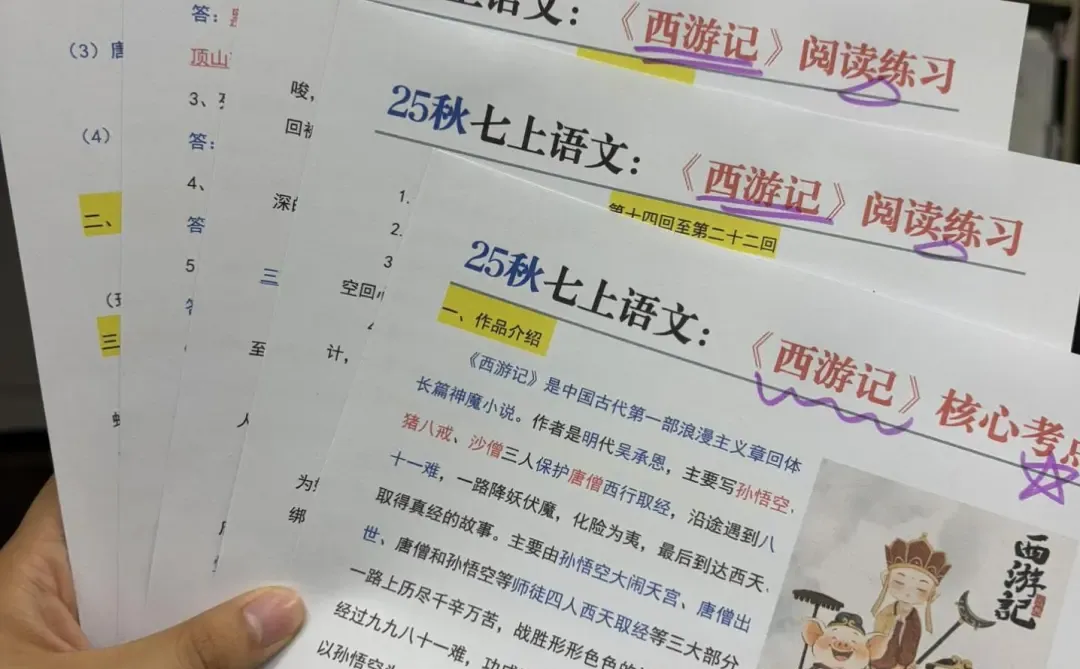 上语文：《西游记》阅读练习
25秋七上语文：《西游记》阅读练习
第十四回至第二十二回
25秋七上语文：《西游记》核心考点
一、作品介绍
《西游记》是中国古代第一部浪漫主义章回体
长篇神魔小说。作者是明代吴承恩，主要写孙悟空、
猪八戒、沙僧三人保护唐僧西行取经，沿途遇到八
十一难，一路降妖伏魔，化险为夷，最后到达西天、
取得真经的故事。主要由孙悟空大闹天宫、唐僧出
世、唐僧和孙悟空等师徒四人西天取经等三大部分
一路上历尽千辛万苦，战胜形形色色的
经过九九八十一难，功
以孙悟空为
西游記
答：
（3）唐
顶山
3、
（4）
答：
4、
二、
答
5
三
唆，
回
深
三
至
人
为
绑
1.
2.
3
空回
计，